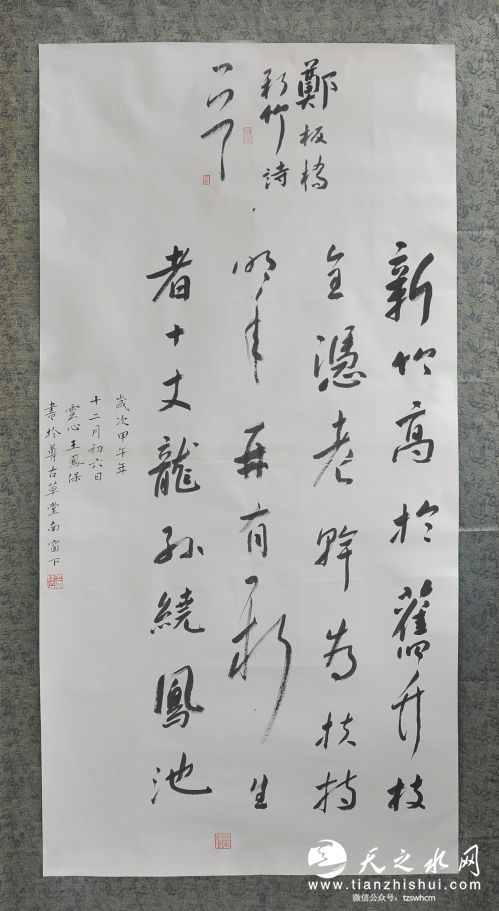 鄭板橋
新竹詩
新竹高於舊竹枝
全憑老幹為扶持
明年再有新生
者十丈龍孫繞鳳池
歲次甲午年
十二月初六日
雲心王鳳保
書於尊古草堂南窗下
天之水网
www.tianzhishui.com
微信公众号：tzswhcm